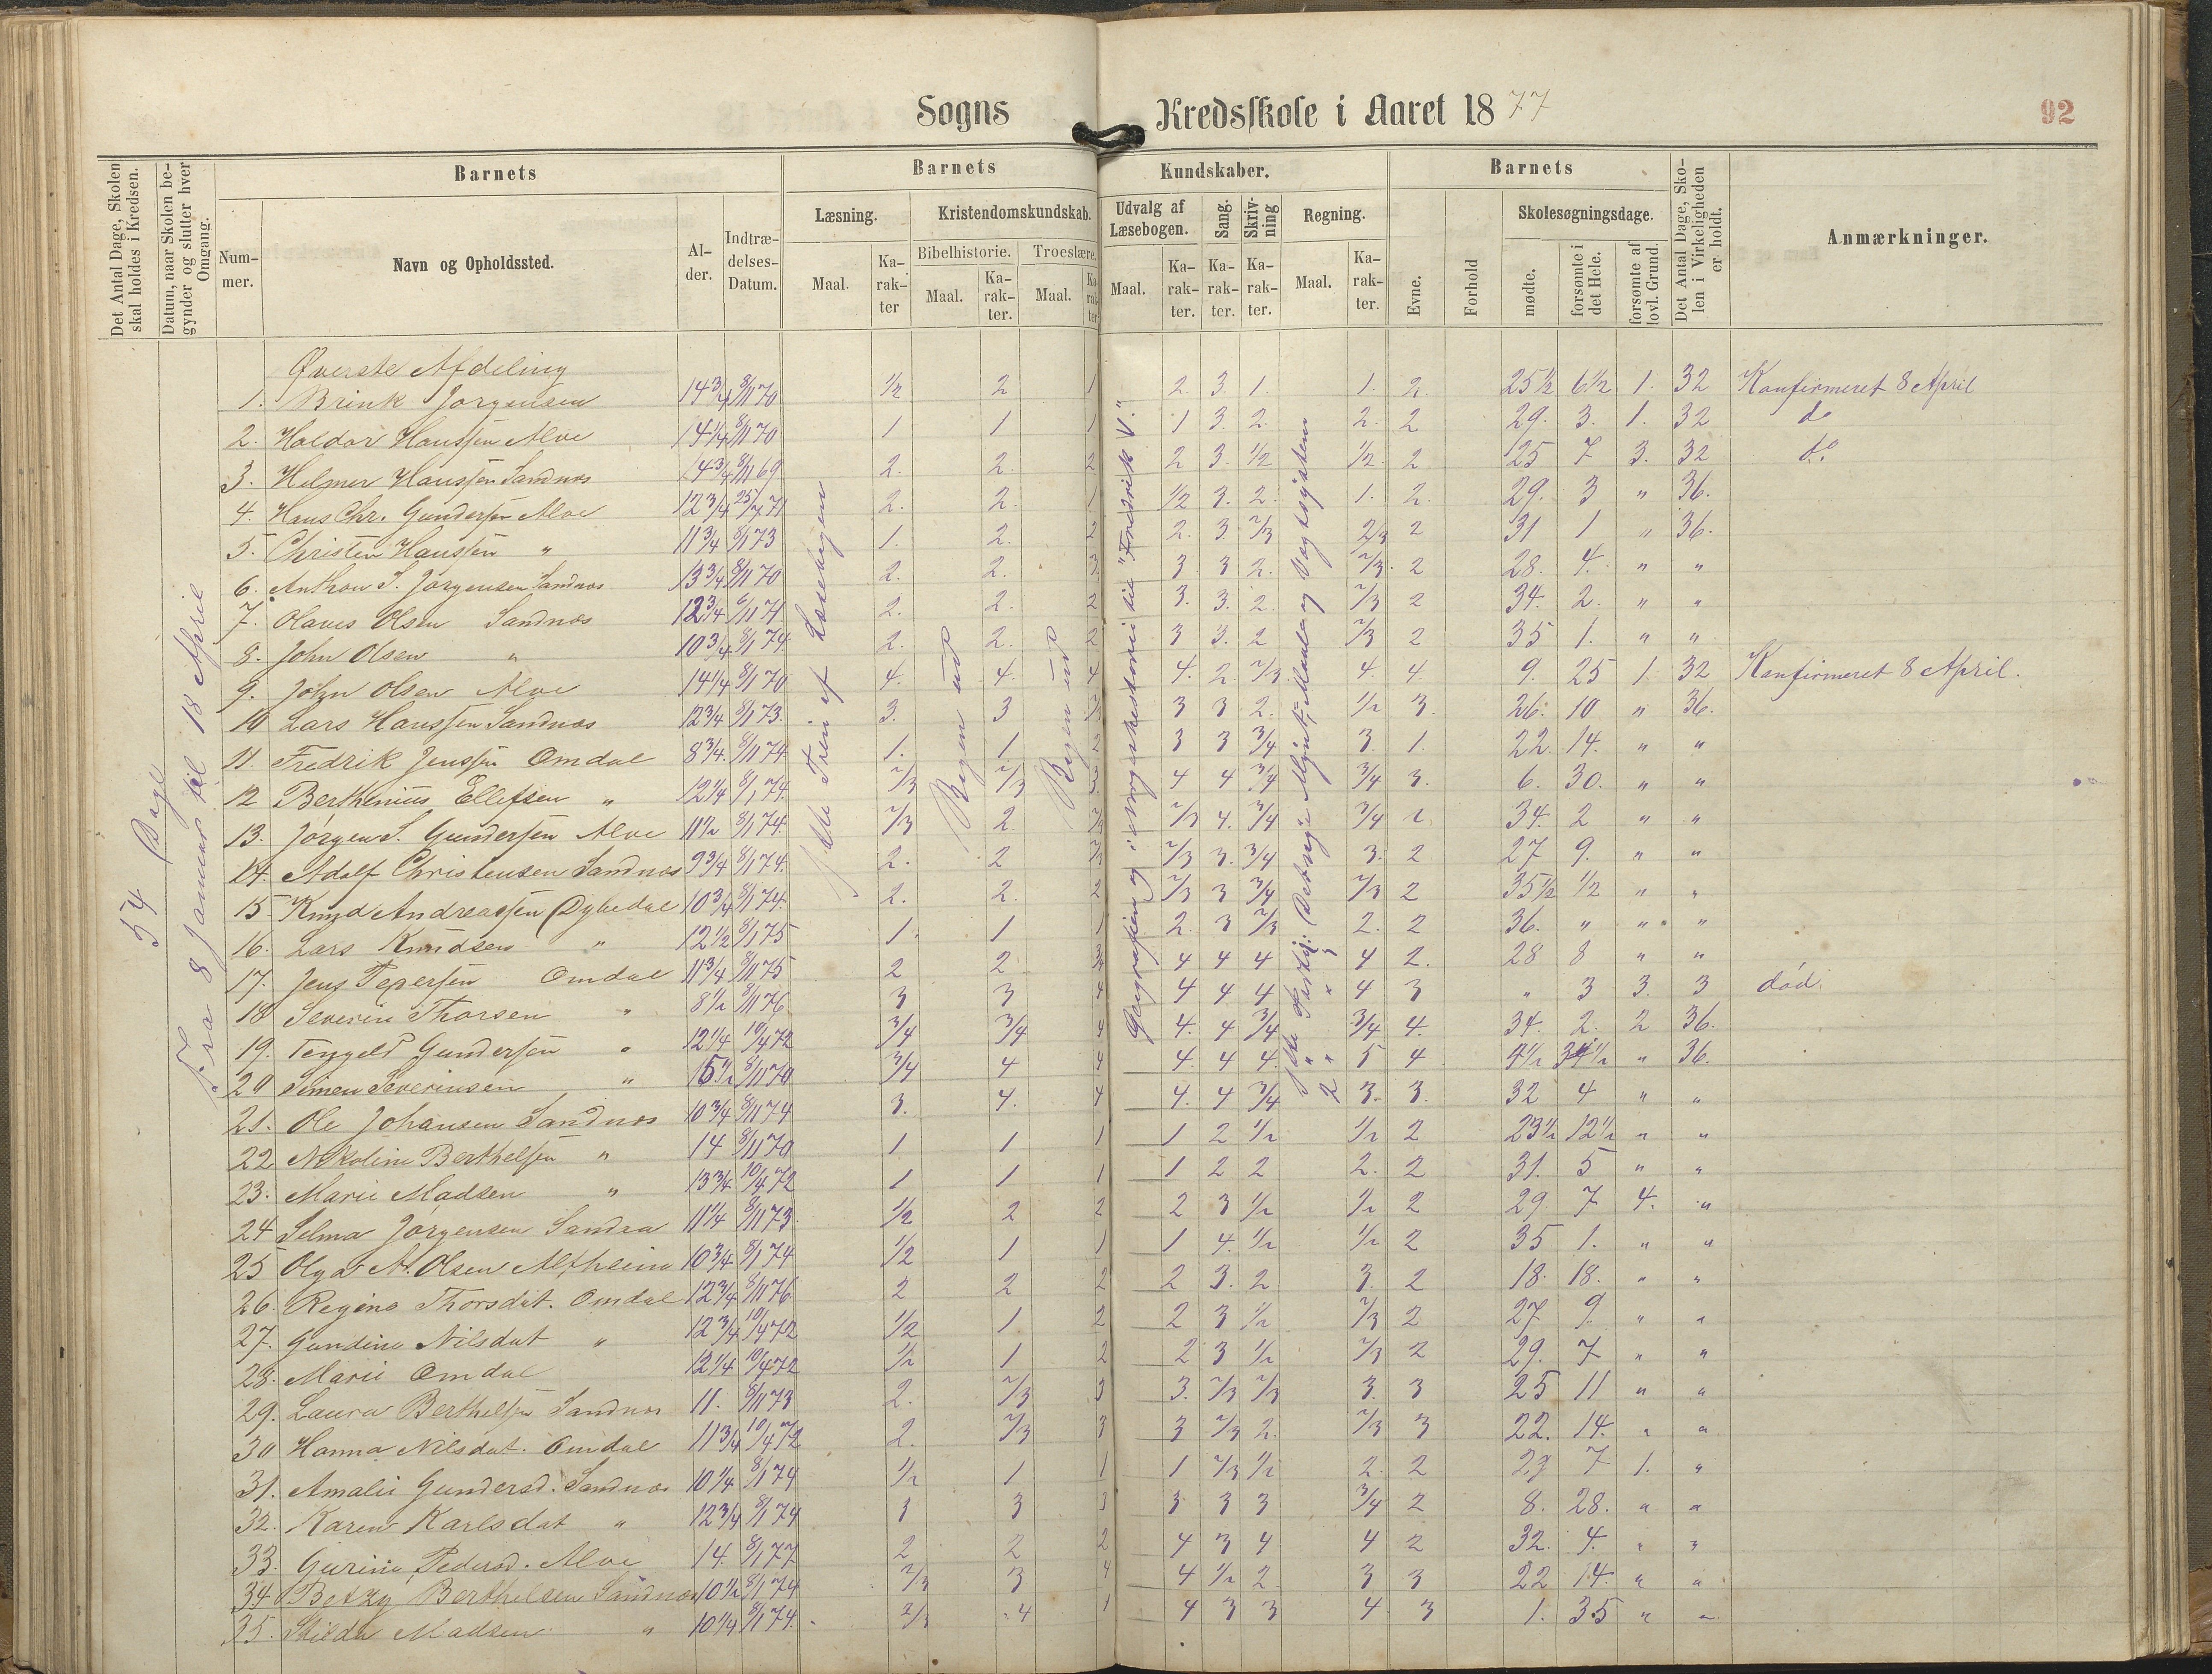 Sogns Kredsskole i Aaret 1877
92
Det Antal Dage, Skolen skal holdes i Kredsen.
Datum, naar Skolen begynder og slutter hver Omgang.
Barnets
Nummer.
Navn og Opholdssted.
Alder.
Indtrædelses-Datum.
Barnets Kundskaber.
Læsning.
Maal.
Karakter
Kristendomskundskab.
Bibelhistorie.
Maal.
Karakter.
Troeslære.
Maal.
Karakter
Udvalg af Læsebogen.
Maal.
Karakter.
Sang.
Karakter.
Skrivning
Karakter.
Regning.
Maal.
Karakter.
Barnets
Evne.
Forhold
Skolesøgningsdage.
mødte.
forsømte i det Hele.
forsømte af lovl. Grund.
Det Antal Dage, Skolen i Virkeligheden er holdt.
Anmærkninger.
54 Dage
Fra 8 Januar til 18 April
Læsebogen
Bogen ud
Bogen ud
Geografien og i Norgeshistorie til "Fredrik V."
Øverste Afdeling
1. Brink Jørgensen 14 3/4 8/1 70 1/2 2 1 2. 3. 1. 1. 2. 25 1/2 6 1/2 1. 32 Konfirmeret 8 April
2. Haldor Hanssen Alve 14 1/4 8/11 70 1 1 1 1 3. 2. 2. 2 29. 3. 1. 32 do
3. Helmer Hanssen Sandnæs 14 3/4 8/11 69 2. 2. 2 2 3. 1/2 1/2. 2 25 7 3. 32 do
4. Hans Chr. Gundersen Alve 12 3/4 25/7 71 2. 2. 1 1/2 3. 2. 1. 2. 29. 3 " 36.
5. Christen Hanssen " 11 3/4 8/1 73 1. 2. 2 2. 3. 2/3 2/3 2 31 1 " 36.
6. Anthon S. Jørgensen Sandnæs 13 3/4 8/11 70 2. 2. 3 3 3 2. 2/3. 2 28. 4. " "
7. Olaves Olsen Sandnæs 12 3/4 6/11 71 2. 2. 2 3. 3. 2. 2/3 2 34. 2. " "
8. John Olsen " 10 3/4 8/1 74 2. 2. 2 3 3. 2 2/3 2 35 1. " "
9. John Olsen Alve 14 1/4 8/1 70 4. 4. 4 4. 2. 2/3 4. 4. 9. 25 1. 32 Konfirmeret 8 April.
10 Lars Hanssen Sandnæs 12 3/4 8/1 73. 3. 3 2/3 3 3 2. 1/2 3. 26. 10 " 36.
11. Fredrik Jenssen Omdal 8 3/4. 8/11 74 1. 1 2 3 3 3/4 3. 1. 22. 14. " "
12 Berthenius Ellefsen " 12 1/4 8/1 74. 2/3 2/3 3. 4 4 3/4 3/4 3. 6. 30. " "
13. Jørgen S. Gundersen Alve 11 1/2 8/1 74. 2/3 2. 2/3 2/3 4. 3/4 3/4 2 34. 2 " "
14. Adolf Christensen Sandnæs 9 3/4 8/1 74. 2. 2 2/3 2/3 3. 3/4 3. 2 27 9. " "
15. Knud Andreassen Dybedal 10 3/4 8/1 74. 2. 2. 2 2/3 3 3/4 2/3 2 35 1/2 1/2 " "
16. Lars Knudsen " 12 1/2 8/1 75 1. 1 1 2. 3 2/3 2. 2 36. " " "
17. Jens Pedersen Omdal 11 3/4 8/11 75 2 2 3/4 4 4 4 4 2. 28 8 " "
18 Severin Thorsen " 8 1/2 8/11 76 3 3 4 4 4 4 4 3 " 3 3. 3 død.
19. Tengeld Gundersen " 12 1/4 10/4 72 3/4 3/4 4 4. 4 3/4 3/4 4. 34. 2. 2 36.
20 Simen Severinsen " 15 1/2 8/11 70 3/4 4 4 4. 4. 4. 5 4 4 1/2 31 1/2 " 36.
21. Ole Johansen Sandnæs 10 3/4 8/11 74 3. 4. 4 4. 4 3/4 3. 3. 32 4 " "
22 Nikoline Berthelsen " 14 8/11 70 1 1 1 1 2 1/2 1/2 2 23 1/2 12 1/2 " "
23. Marie Madsen " 13 3/4 10/4 72 1 1 1 1 2 2 2. 2 31. 5 " "
24 Selma Jørgensen Sandaa 11 1/4 8/11 73. 1/2 2 2 2 3 1/2 1/2 2 29. 7 4. "
25 Olga A. Olsen Alfheim 10 3/4 8/1 74 1/2 1 1 1 4. 1/2 1/2 2 35 1. " "
26. Regine Thorsdat. Omdal 12 3/4 8/11 76. 2 2 2 2 3. 2 3. 2 18. 18. " "
27. Gundine Nilsdat " 12 3/4 10/4 72 1/2 1 2 2 3 1/2 2/3 2 27 9. " "
28. Marie Omdal 12 1/4 10/4 72 1/2 1 2 2 3 1/2 2/3 2 29. 7 " "
29. Laura Berthelsen Sandnæs 11. 8/11 73 2. 2/3 3 3. 2/3 2/3 3. 3 25 11 " "
30 Hanna Nilsdat. Omdal 11 3/4 10/4 72 2. 2/3 3 3 2/3 2. 2/3 3 22. 14. " "
31. Amalie Gundersd. Sandnæs 10 1/4 8/1 74 1/2 1 1 1 2/3 1/2 2. 2 29 7 1. "
32. Karen Karlsdat " 12 3/4 8/1 74 3 3 3 3 3 3 3/4 2 8. 28. " "
33. Gurine Pedersd. Alve 14. 8/1 77 2 2 2 4 3 4 4 2 32. 4. " "
34 Betzy Berthelsen Sandnæs 10 1/2 8/1 74 2/3 3 4 4 1/2 2. 3 3 22 14. " "
35. Hilda Madsen " 10 1/4 8/1 74. 2/3 4 1 4 3 3 4. 3 1. 35 " "